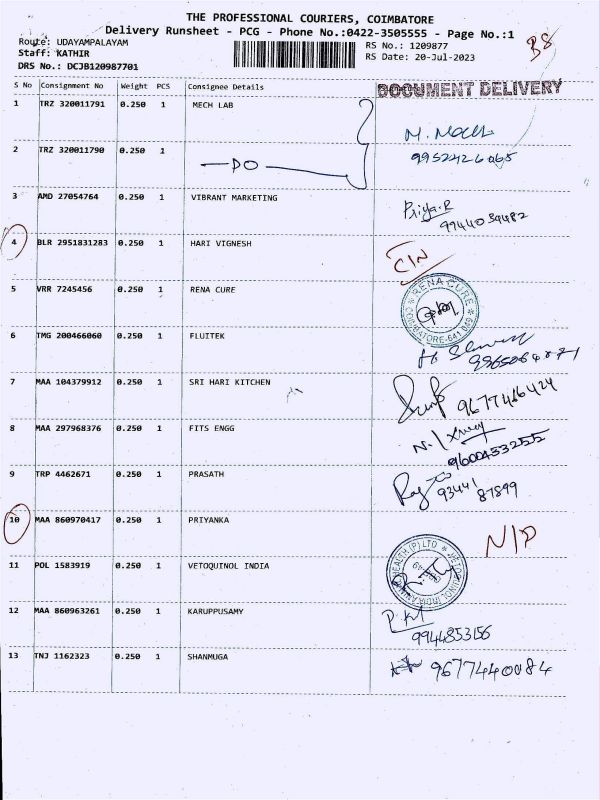 THE PROFESSIONAL COURIERS, COIMBATORE
Delivery Runsheet - PCG - Phone No.:0422-3505555 - Page No.:1
Route: UDAYAMPALAYAM
Staff: KATHIR
DRS No.: DCJB120987701
RS No.: 1209877
RS Date: 20-Jul-2023
S No Consignment No Weight PCS Consignee Details
DOCUMENT DELIVERY
1 TRZ 320011791 0.250 1 MECH LAB
2 TRZ 320011790 0.250 1 —DO—
9952426065
3 AMD 27054764 0.250 1 VIBRANT MARKETING Priya.R
9944034482
4 BLR 2951831283 0.250 1 HARI VIGNESH C/N
5 VRR 7245456 0.250 1 RENA CURE RENA CURE
COIMBATORE-641 049
6 TMG 200466060 0.250 1 FLUITEK
7 MAA 104379912 0.250 1 SRI HARI KITCHEN 9677466424
8 MAA 297968376 0.250 1 FITS ENGG
9600453255
9 TRP 4462671 0.250 1 PRASATH 93441
87899
10 MAA 860970417 0.250 1 PRIYANKA N/P
11 POL 1583919 0.250 1 VETOQUINOL INDIA
12 MAA 860963261 0.250 1 KARUPPUSAMY
9944853156
13 TNJ 1162323 0.250 1 SHANMUGA 9677440084